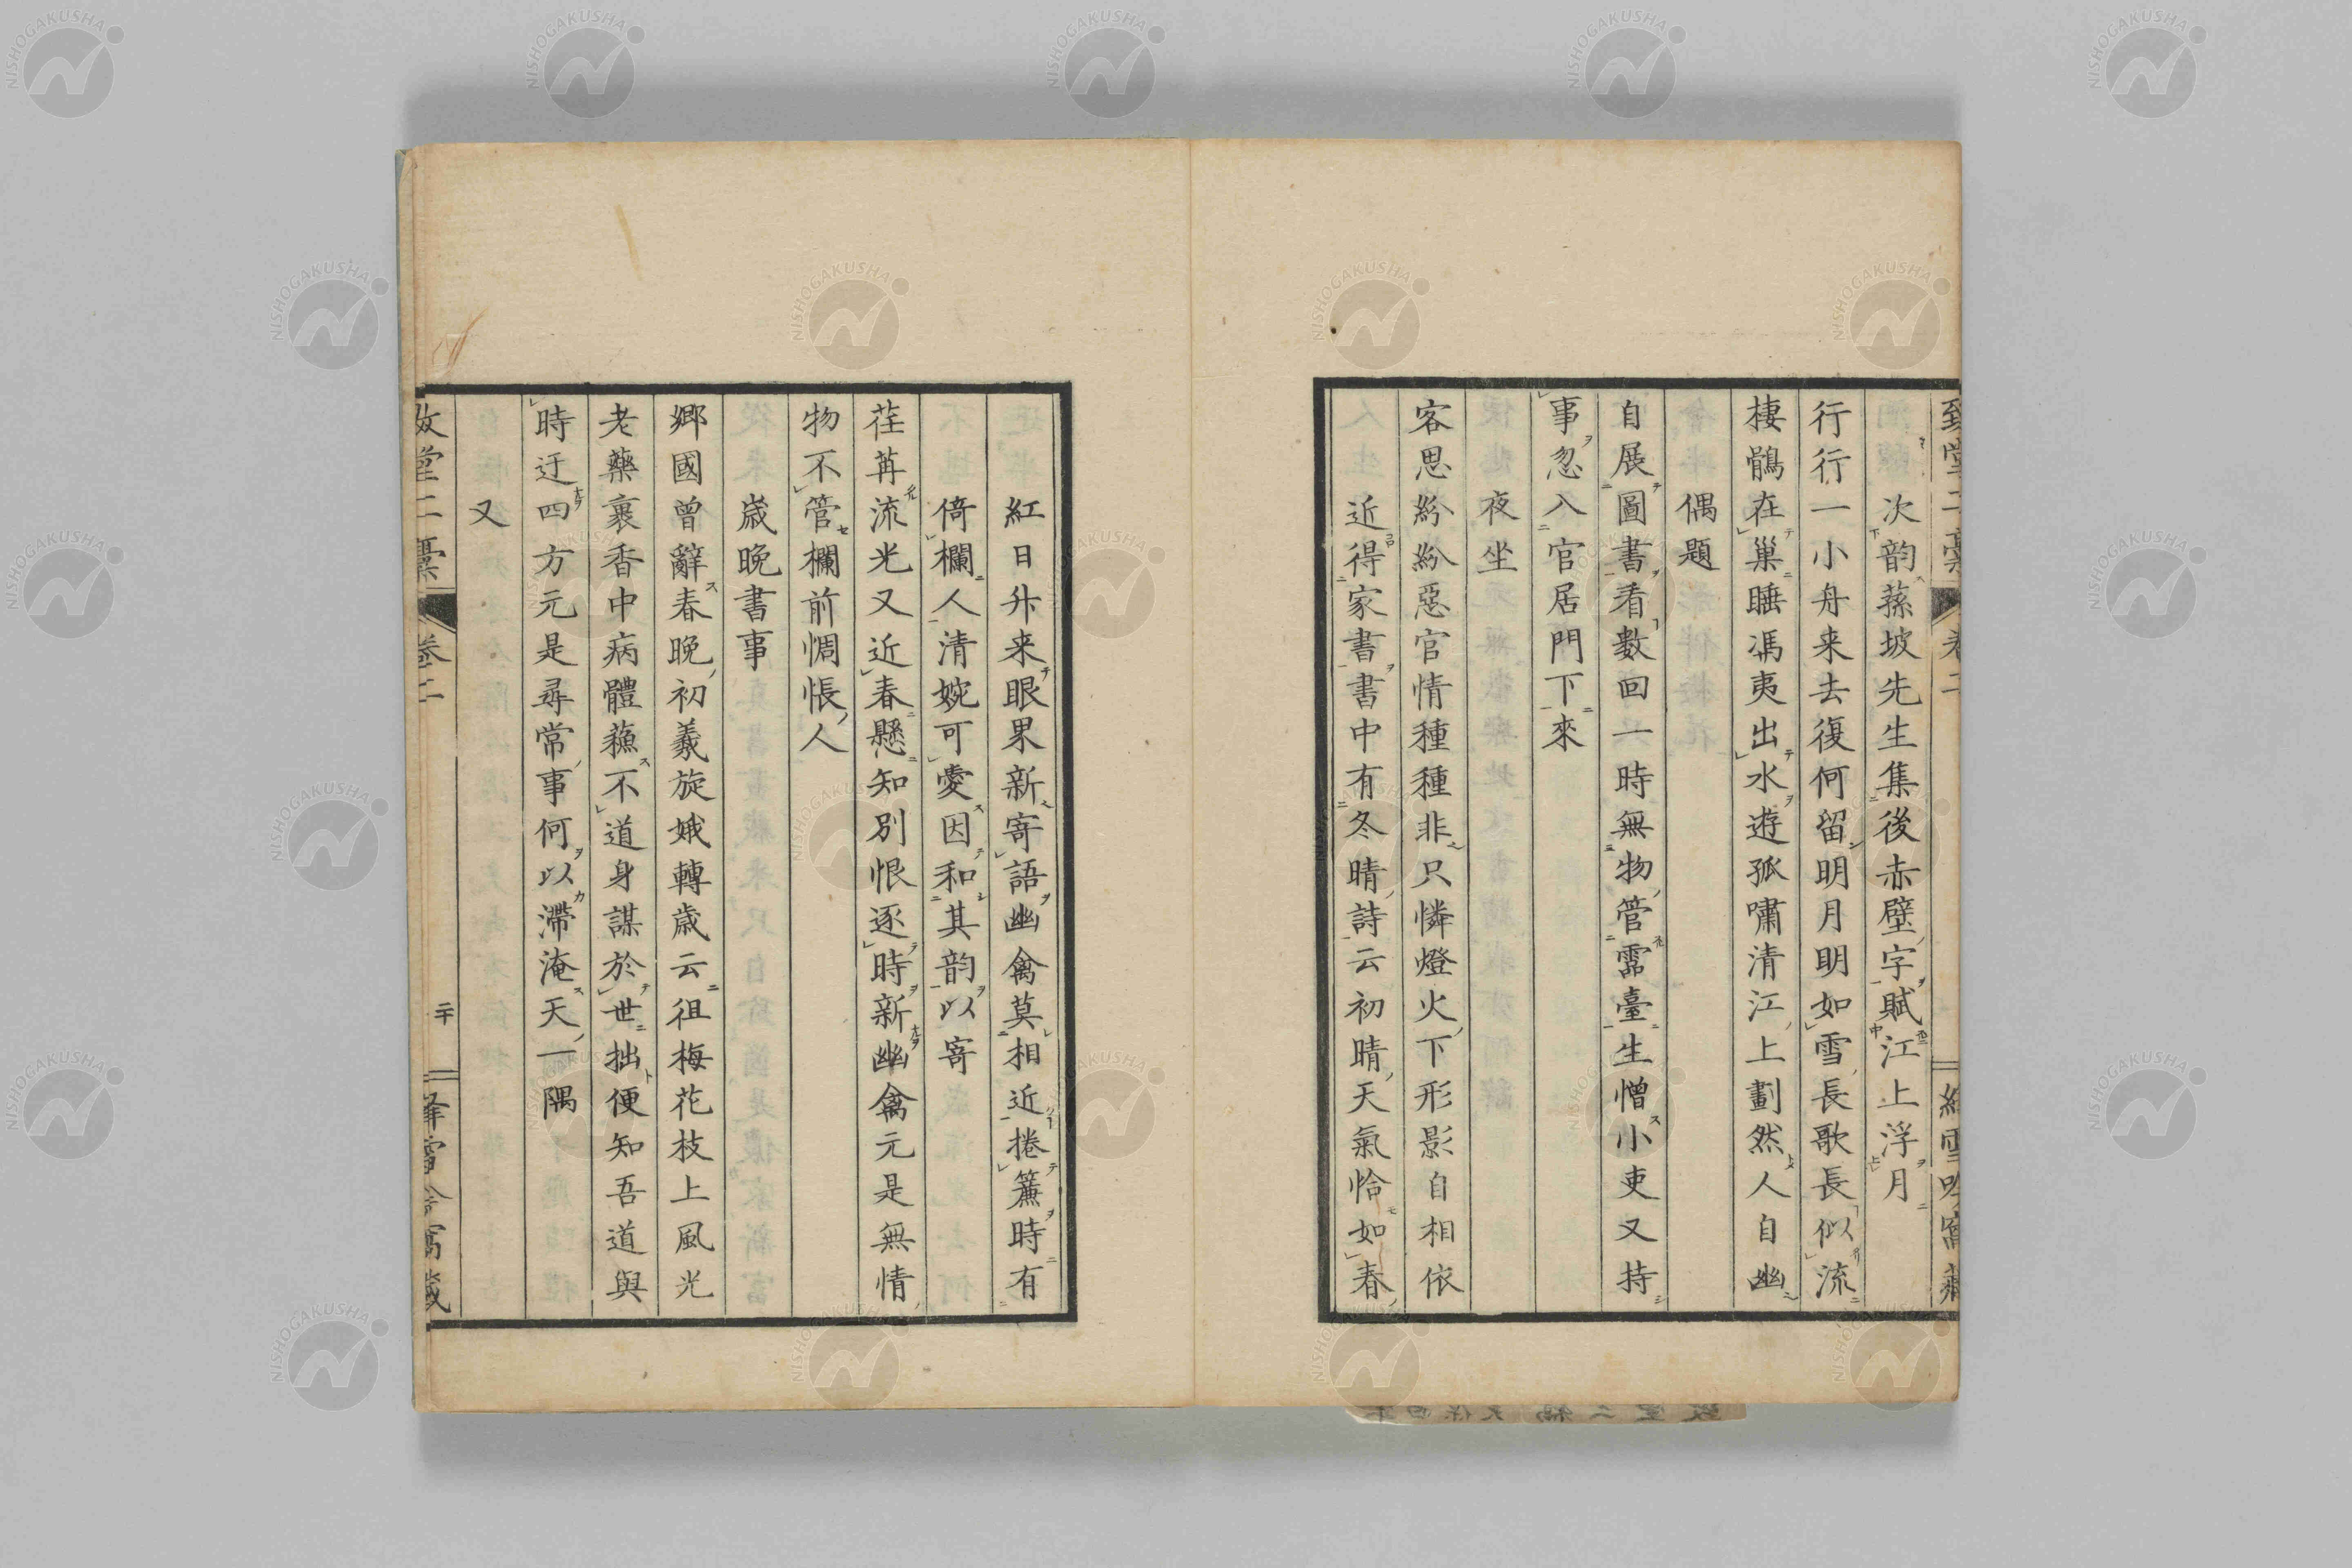 次韵蘓坡先生集後赤壁字賦江上浮月
行行一小舟来去復何留明月明如雪長歌長似流
棲鶻在巢睡馮夷出水遊孤嘯清江上劃然人自幽
偶題
自展圖書看數回一時無物管霛臺生憎小吏又持
事忽入官居門下來
夜坐
客思紛紛惡官情種種非只憐燈火下形影自相依
近得家書書中有冬晴詩云初晴天氣恰如春
紅日升来眼果新寄語幽禽莫相近捲簾時有
倚欄人清婉可愛因和其韵以寄
荏苒流光又近春懸知別恨逐時新幽禽元是無情
物不管欄前惆悵人
歳晩書事
郷國曾辭春晩初羲旋娥轉歳云徂梅花枝上風光
老藥裹香中病體蘓不道身謀於世拙便知吾道與
時迂四方元是尋常事何以滯淹天一隅
又
卷二
二十
NISHOGAKUSHA